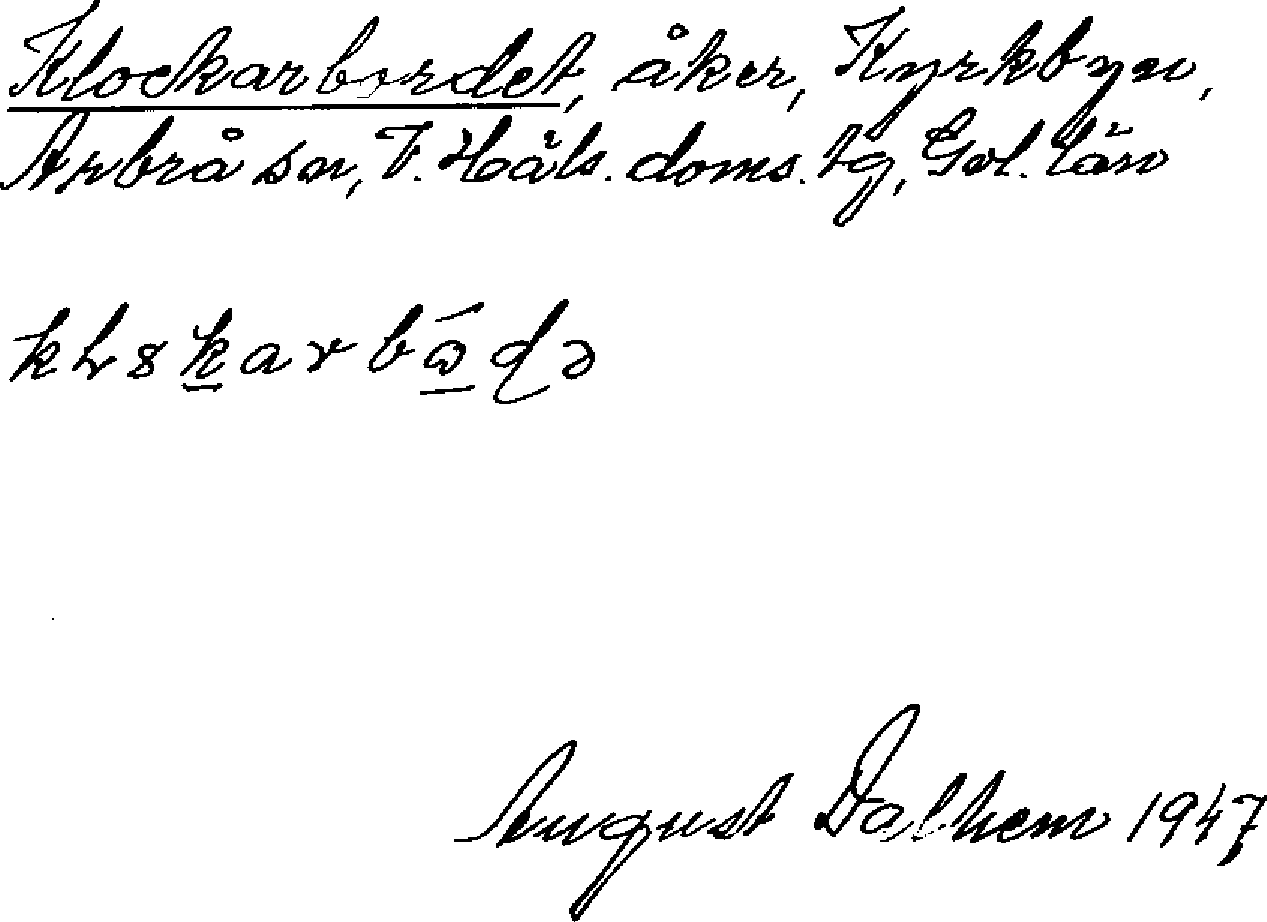 Klockarbordet, åker, Kyrkbyn,
Arbrå sn, V. Häls. doms. tg, Gvl. län
August Dalhem 1947